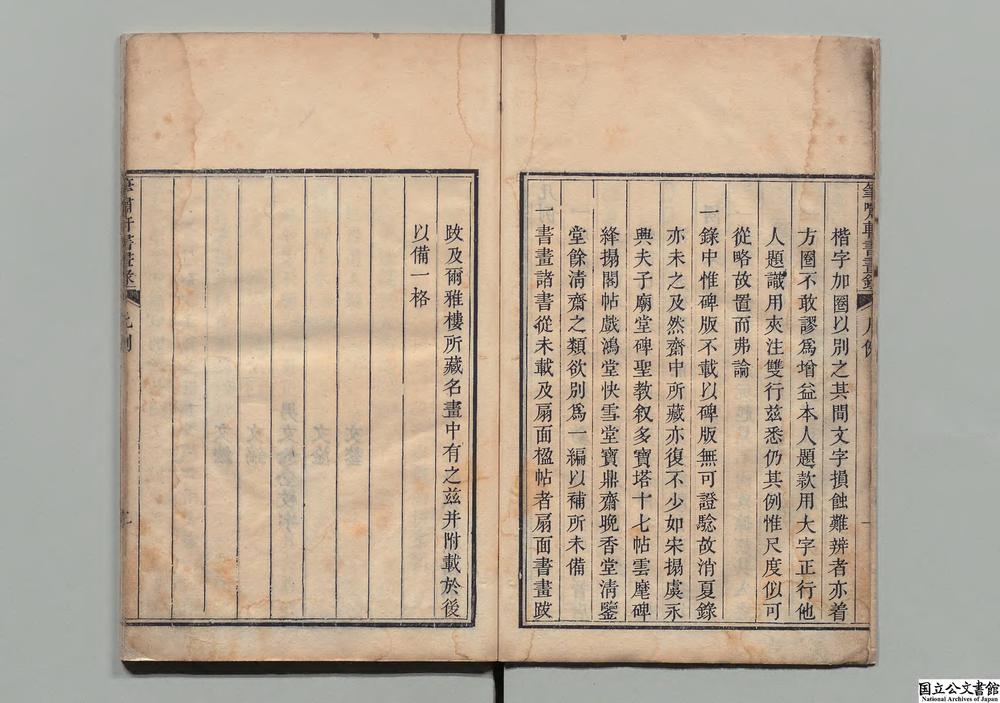 筆嘯軒書畫錄
凡例
楷字加圈以別之其間文字損蝕難辨者亦着
方圈不敢謬爲增益本人題款用大字正行他
人題識用夾注雙行兹悉仍其例惟尺度似可
從略故置而弗論
一錄中惟碑版不載以碑版無可證驗故消夏錄
亦未之及然齋中所藏亦復不少如宋搨虞永
興夫子廟堂碑聖教叙多寶塔十七帖雲麾碑
絳搨閣帖戲鴻堂快雪堂寶鼎齋晚香堂淸鑒
堂餘淸齋之類欲別爲一編以補所未備
一書畫諸書從未載及扇面楹帖者扇面書畫跋
跋及爾雅樓所藏名畫中有之兹并附載於後
以備一格
筆嘯軒書畫錄
凡例
国立公文書館
National Archives of Japan